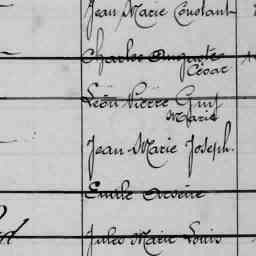 Jean Marie Constant
Charles Auguste
César
Léon Pierre
Marie
Jean Marie Joseph.
Emile Arsène
Jules Marie Louis